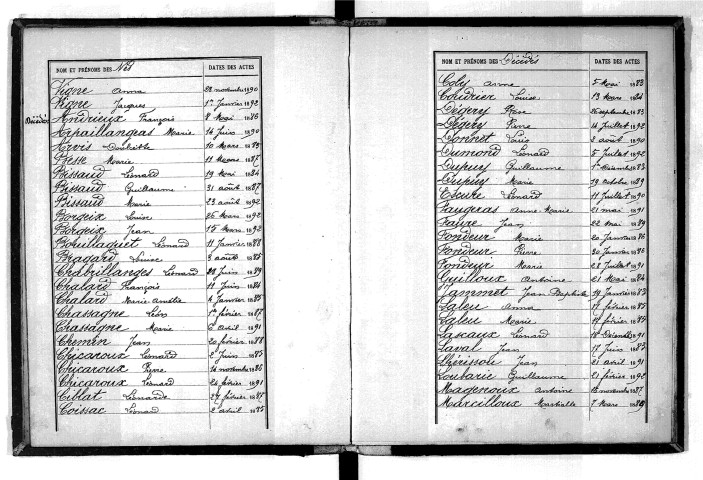 NOM ET PRÉNOMS DES Nés DATES DES ACTES
Vigne Anna 28 novembre 1890
Vigne Jacques 1er Janvier 1892
Décédés
Andrieux François 8 Mai 1886
Arpaillangras Marie 14 Juin 1890
Arvis 10 Mars 1883
Besse Marie 11 Mars 1887
Bissaud Léonard 19 Mai 1884
Bissaud Guillaume 31 août 1887
Bissaud Marie 23 août 1892
Borgeix Louise 25 Mars 1892
Borgeix Jean 15 Mars 1892
Bouillaguet Léonard 11 Janvier 1888
Bragard Louise 3 août 1885
Chabrillanges Léonard 28 Juin 1889
Chalard François 11 Juin 1884
Chalard Marie Amélie 4 Janvier 1885
Chassagne Léon 1er février 1887
Chassagne Marie 6 avril 1891
Chemin Jean 20 février 1888
Chicaroux Léonard 2 Juin 1883
Chicaroux Pierre 16 novembre 1886
Chicaroux Léonard 26 février 1891
Ciblat Léonarde 27 février 1887
Coissac Léonard 2 avril 1885
NOM ET PRÉNOMS DES Décédés DATES DES ACTES
Coly Anne 5 Mai 1883
Coudrier Louise 13 Mars 1884
Dégery Pierre 1883
Dégery Pierre 16 Juillet 1892
Donnet Louis 2 août 1890
Dumond Léonard 5 Juillet 1892
Dupuy Guillaume 1er décembre 1883
Dupuy Marie 19 octobre 1889
Escure Léonard 11 Juillet 1890
Faugras Anne Marie 21 mai 1891
Faure Jean 22 Mai 1889
Fondeur Marie 20 Janvier 1886
Fondeur Pierre 30 Janvier 1886
Fondeur Marie 28 Juillet 1891
Guilloux Antoine 21 Mai 1884
Jammet Jean Baptiste 19 Janvier 1883
Laleu Anna 17 février 1885
Laleu Marie 19 février 1885
Lascaux Léonard 18 Décembre 1891
Laval Jean 17 Juin 1883
Lhérisson Jean 21 avril 1891
Loubarie Guillaume 21 février 1892
Magenoux Antoine 18 novembre 1887
Marcilloux Martialle 7 Mars 1889